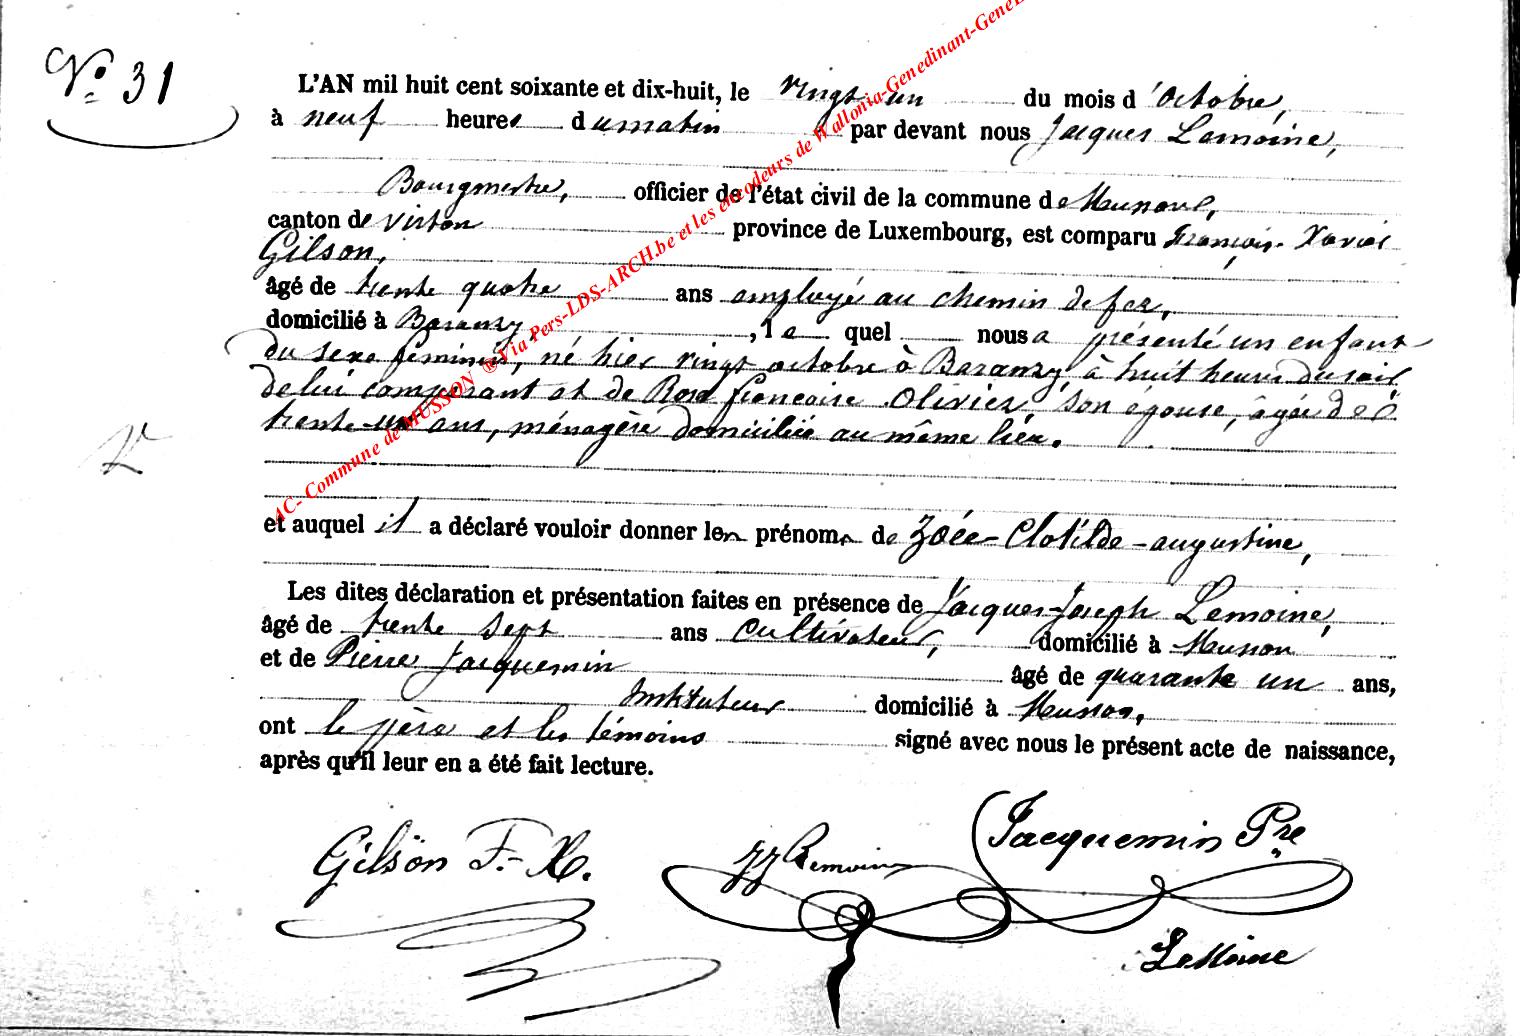 N° 31
L'AN mil huit cent soixante et dix-huit, le vingt-un du mois d'octobre,
à neuf heures du matin par devant nous Jacques Lemoine,
Bourgmestre, officier de l'état civil de la commune de Musson,
canton de Virton province de Luxembourg, est comparu François-Xavier
Gilson,
âgé de trente quatre ans employé au chemin de fer,
domicilié à Baranzy, lequel nous a présenté un enfant
du sexe féminin, né hier vingt octobre à Baranzy, à huit heures du soir
de lui comparant et de Rose Olivier, son épouse, âgée de
trente-un ans, ménagère domiciliée au même lieu.
et auquel il a déclaré vouloir donner les prénoms de Zoée-Clotilde-augustine,
Les dites déclaration et présentation faites en présence de Jacques-Joseph Lemoine,
âgé de trente sept ans Cultivateur, domicilié à Musson
et de Pierre Jacquemin âgé de quarante un ans,
Instituteur domicilié à Musson,
ont le père et les témoins signé avec nous le présent acte de naissance,
après qu'il leur en a été fait lecture.
Gilson F.-X.
JJ Lemoine
Jacquemin Pre
Lemoine
AC- Commune de MUSSON ® Via Pers-LDS-ARCH.be et les encodeurs de Wallonia-Genedinant-GeneL